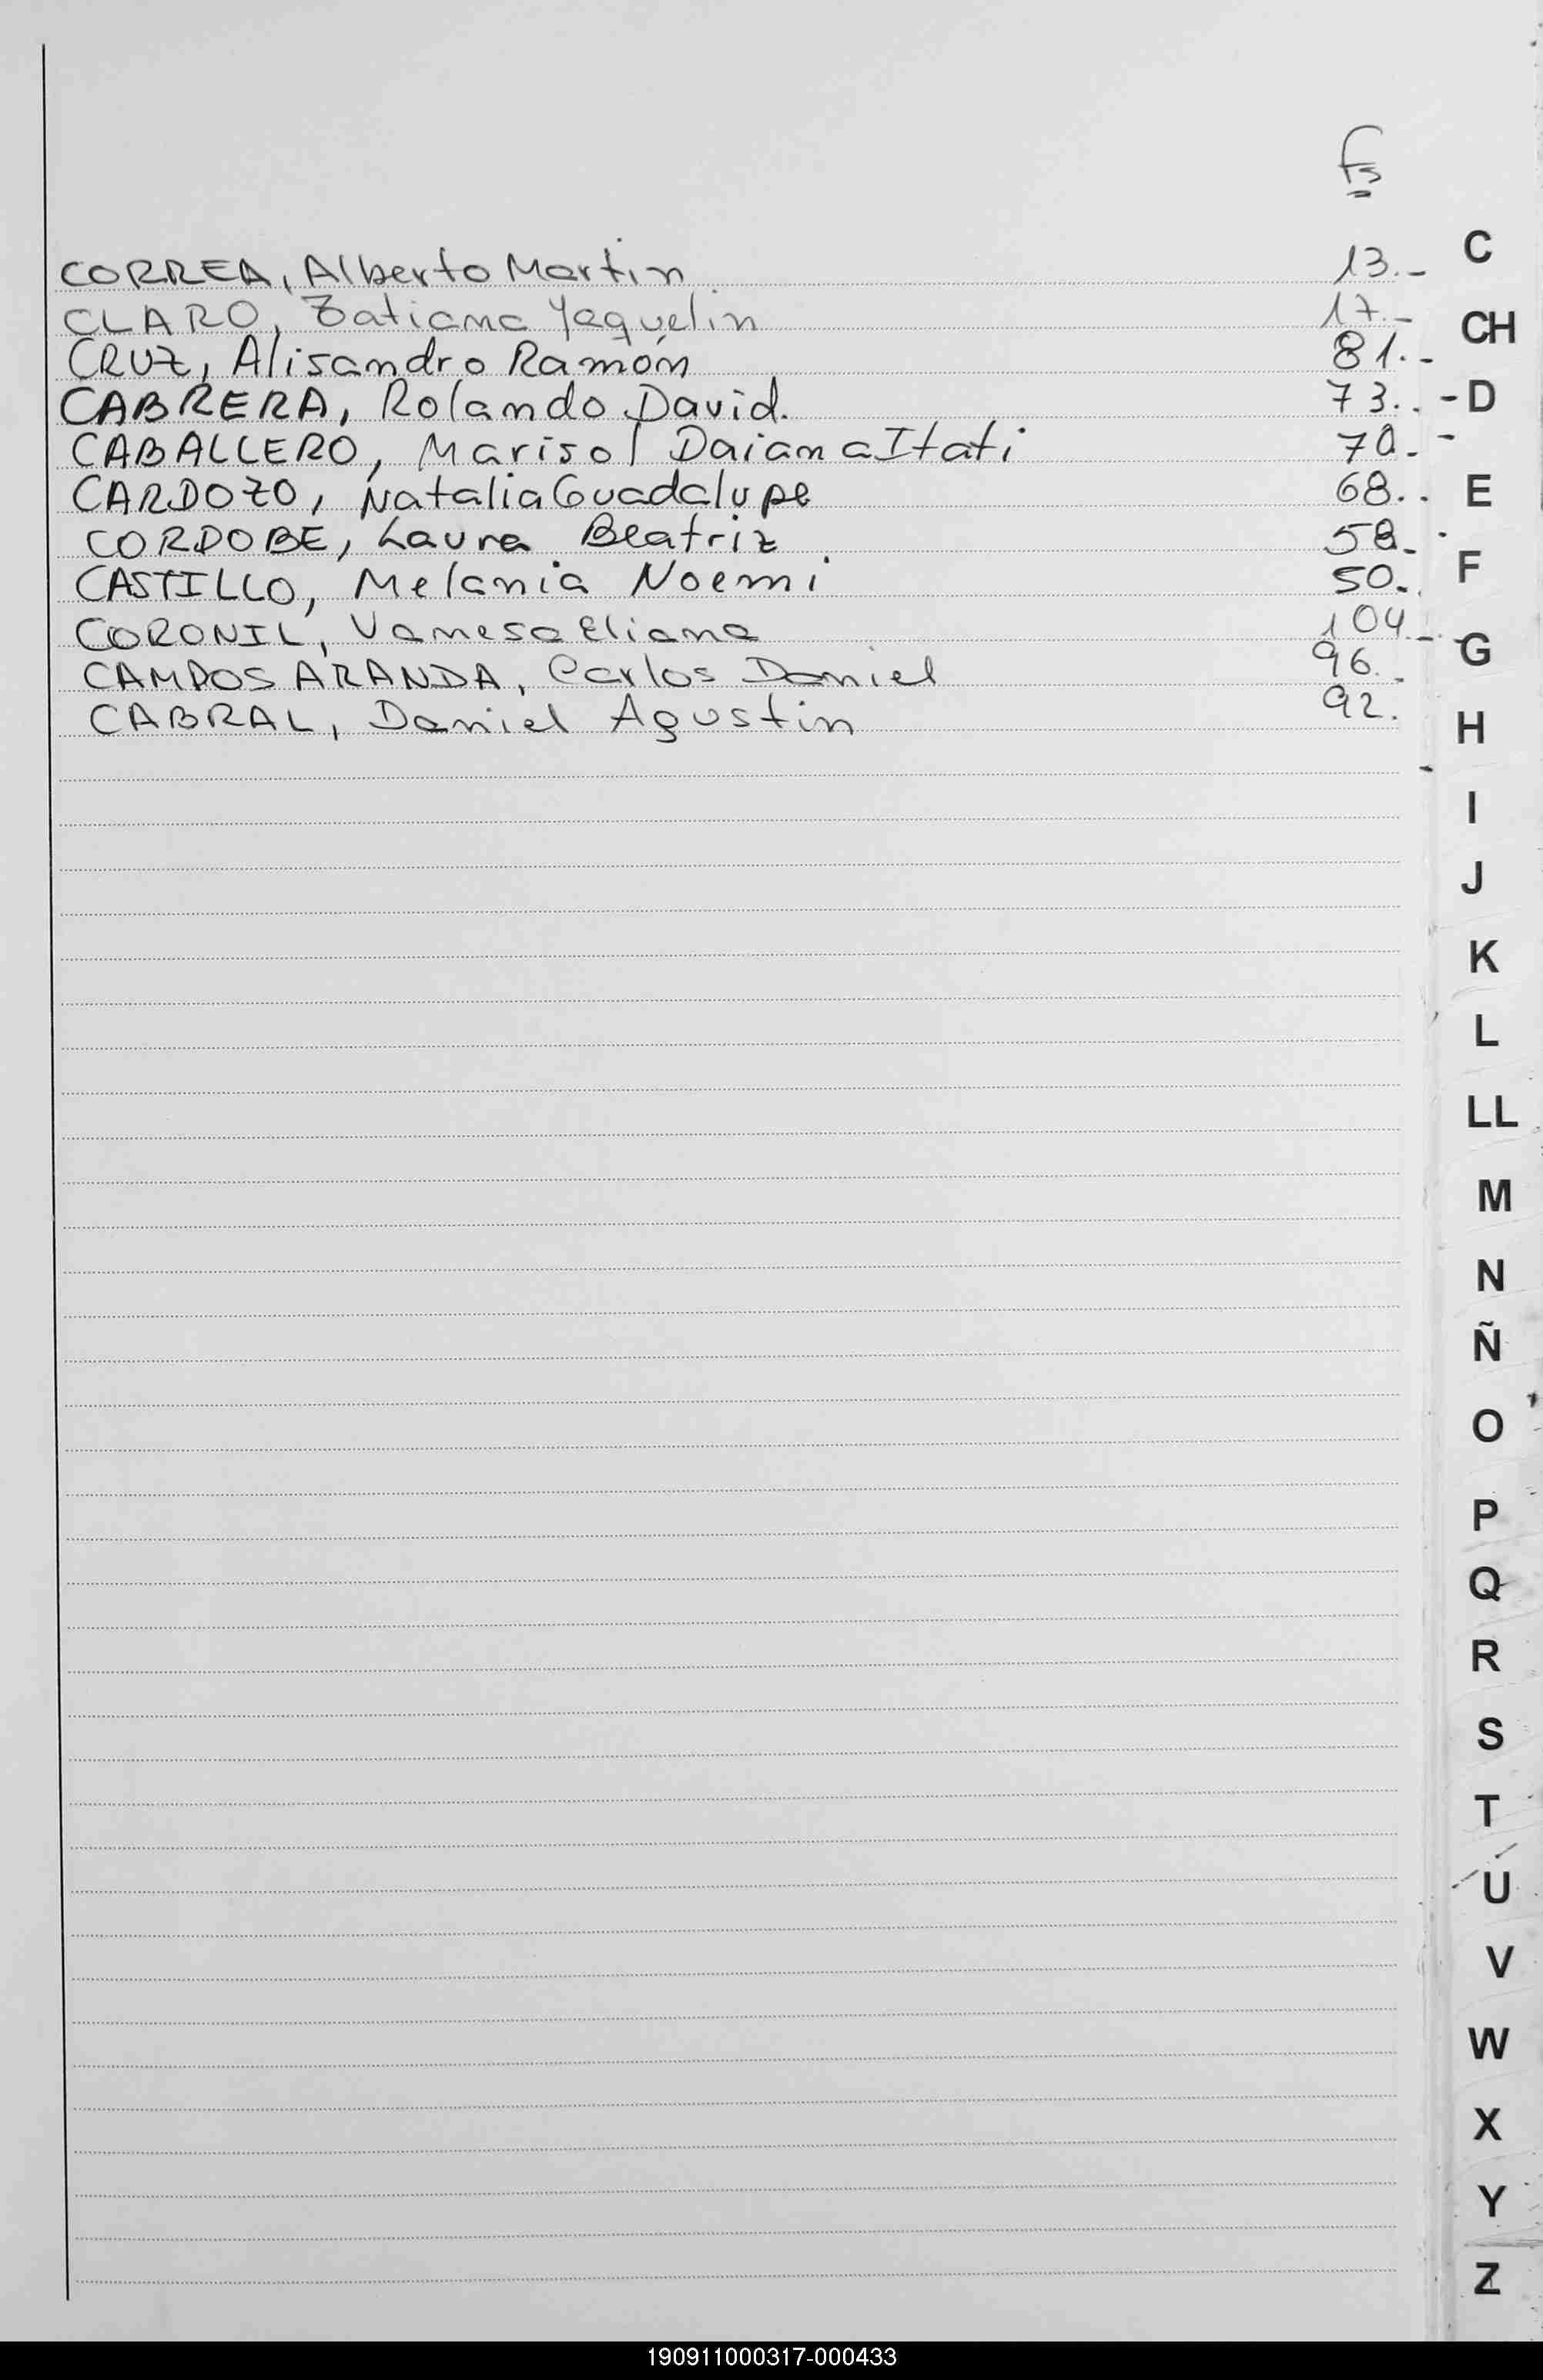 Fs
CORREA, Alberto Martin 13.- C
CLARO, Tatiana Yaquelin 17.- CH
CRUZ, Alisandro Ramón 81.-
CABRERA, Rolando David. 73.. - D
CABALLERO, Marisol Daiana Itati 70.-
CARDOZO, Natalia Guadalupe 68.. E
CORDOBE, Laura Beatriz 58.-
CASTILLO, Melania Noemi 50.. F
CORONIL, Vanesa Eliana 104.-
CAMPOS ARANDA, Carlos Daniel 96.- G
CABRAL, Daniel Agustin 92.
H
I
J
K
L
LL
M
N
Ñ
O
P
Q
R
S
T
U
V
W
X
Y
Z
190911000317-000433